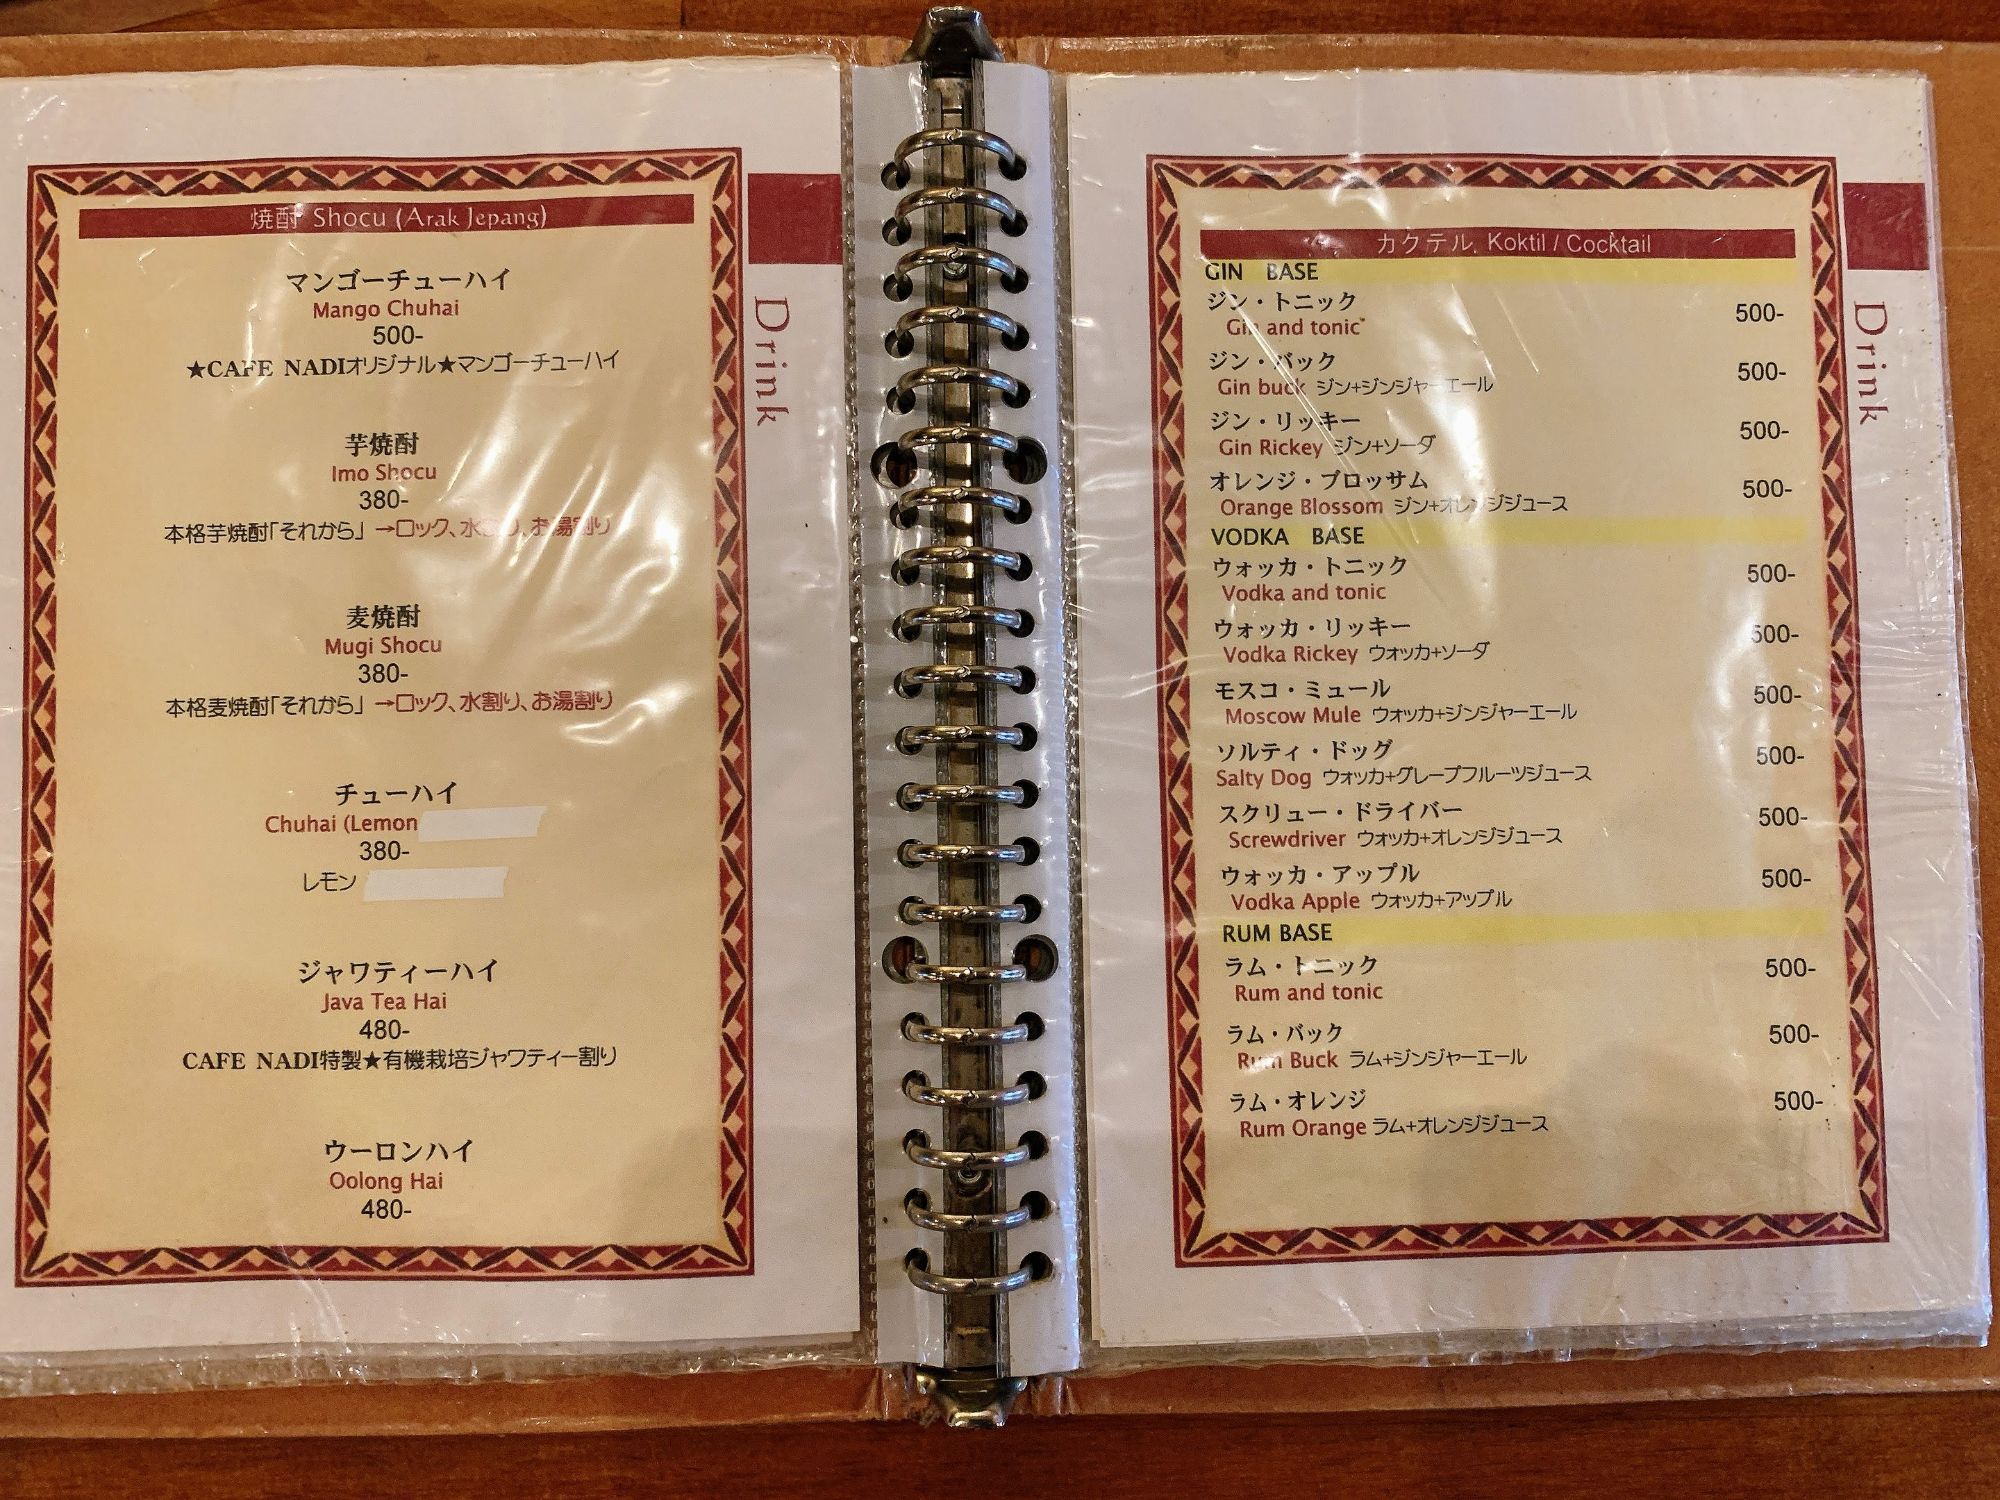 焼酎 Shocu (Arak Jepang)
マンゴーチューハイ
Mango Chuhai
500-
★CAFE NADIオリジナル★マンゴーチューハイ
芋焼酎
Imo Shocu
380-
本格芋焼酎「それから」→ロック、水割り、お湯割り
麦焼酎
Mugi Shocu
380-
本格麦焼酎「それから」→ロック、水割り、お湯割り
チューハイ
Chuhai (Lemon
380-
レモン
ジャワティーハイ
Java Tea Hai
480-
CAFE NADI特製★有機栽培ジャワティー割り
ウーロンハイ
Oolong Hai
480-
Drink
カクテル Koktil / Cocktail
GIN BASE
ジン・トニック 500-
Gin and tonic
ジン・バック 500-
Gin buck ジン+ジンジャーエール
ジン・リッキー 500-
Gin Rickey ジン+ソーダ
オレンジ・ブロッサム 500-
Orange Blossom ジン+オレンジジュース
VODKA BASE
ウォッカ・トニック 500-
Vodka and tonic
ウォッカ・リッキー 500-
Vodka Rickey ウォッカ+ソーダ
モスコ・ミュール 500-
Moscow Mule ウォッカ+ジンジャーエール
ソルティ・ドッグ 500-
Salty Dog ウォッカ+グレープフルーツジュース
スクリュー・ドライバー 500-
Screwdriver ウォッカ+オレンジジュース
ウォッカ・アップル 500-
Vodka Apple ウォッカ+アップル
RUM BASE
ラム・トニック 500-
Rum and tonic
ラム・バック 500-
Rum Buck ラム+ジンジャーエール
ラム・オレンジ 500-
Rum Orange ラム+オレンジジュース
Drink